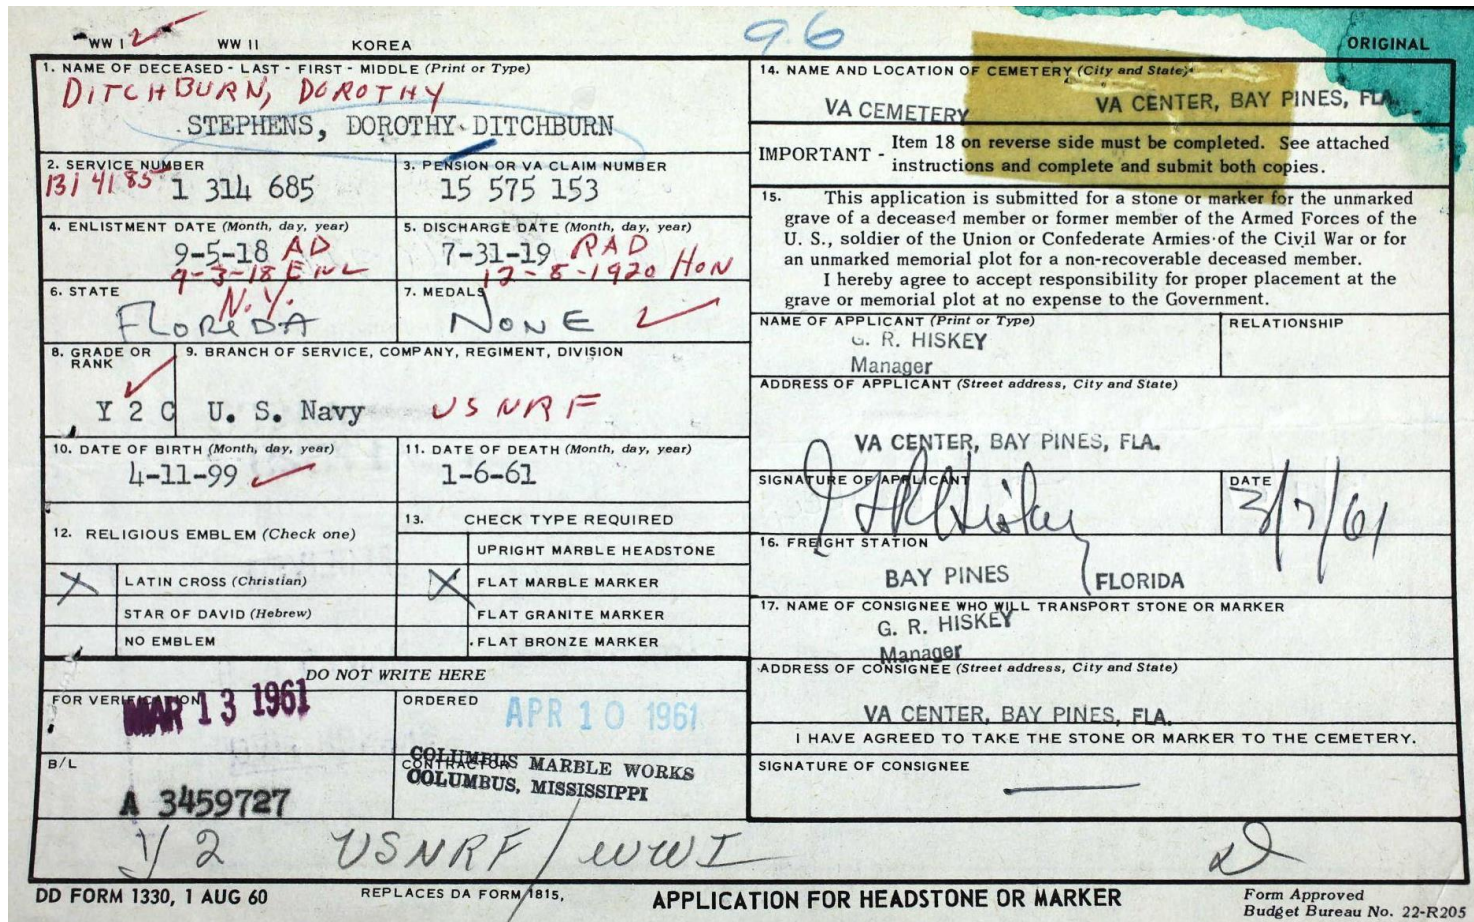 WW I WW II KOREA
96
ORIGINAL
1. NAME OF DECEASED - LAST - FIRST - MIDDLE (Print or Type)
DITCHBURN, DOROTHY
STEPHENS, DOROTHY DITCHBURN
2. SERVICE NUMBER
1314185
1 314 685
3. PENSION OR VA CLAIM NUMBER
15 575 153
4. ENLISTMENT DATE (Month, day, year)
9-5-18 AD
9-3-18 ENL
5. DISCHARGE DATE (Month, day, year)
7-31-19 RAD
12-8-1920 HON
6. STATE
N.Y.
FLORIDA
7. MEDALS
NONE
8. GRADE OR RANK
Y 2 C
9. BRANCH OF SERVICE, COMPANY, REGIMENT, DIVISION
U. S. Navy USNRF
10. DATE OF BIRTH (Month, day, year)
4-11-99
11. DATE OF DEATH (Month, day, year)
1-6-61
12. RELIGIOUS EMBLEM (Check one)
X LATIN CROSS (Christian)
STAR OF DAVID (Hebrew)
NO EMBLEM
13. CHECK TYPE REQUIRED
UPRIGHT MARBLE HEADSTONE
X FLAT MARBLE MARKER
FLAT GRANITE MARKER
FLAT BRONZE MARKER
DO NOT WRITE HERE
FOR VERIFICATION
MAR 13 1961
ORDERED
APR 10 1961
B/L
A 3459727
CONTRACTOR
COLUMBUS MARBLE WORKS
COLUMBUS, MISSISSIPPI
14. NAME AND LOCATION OF CEMETERY (City and State)
VA CEMETERY VA CENTER, BAY PINES, FLA.
IMPORTANT - Item 18 on reverse side must be completed. See attached
instructions and complete and submit both copies.
15. This application is submitted for a stone or marker for the unmarked
grave of a deceased member or former member of the Armed Forces of the
U. S., soldier of the Union or Confederate Armies of the Civil War or for
an unmarked memorial plot for a non-recoverable deceased member.
I hereby agree to accept responsibility for proper placement at the
grave or memorial plot at no expense to the Government.
NAME OF APPLICANT (Print or Type)
G. R. HISKEY
Manager
RELATIONSHIP
ADDRESS OF APPLICANT (Street address, City and State)
VA CENTER, BAY PINES, FLA.
SIGNATURE OF APPLICANT
GR Hiskey
DATE
3/7/61
16. FREIGHT STATION
BAY PINES FLORIDA
17. NAME OF CONSIGNEE WHO WILL TRANSPORT STONE OR MARKER
G. R. HISKEY
Manager
ADDRESS OF CONSIGNEE (Street address, City and State)
VA CENTER, BAY PINES, FLA.
I HAVE AGREED TO TAKE THE STONE OR MARKER TO THE CEMETERY.
SIGNATURE OF CONSIGNEE
Y2 USNRF / WWI
DD FORM 1330, 1 AUG 60
REPLACES DA FORM 1815,
APPLICATION FOR HEADSTONE OR MARKER
Form Approved
Budget Bureau No. 22-R205